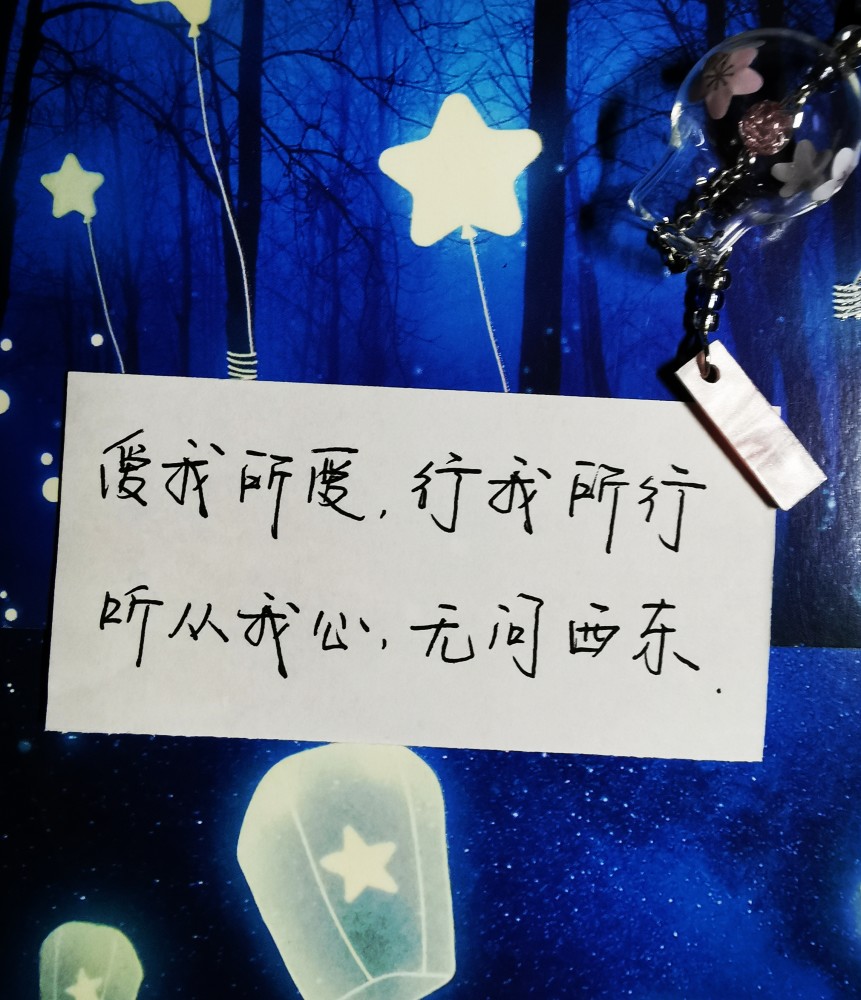 爱我所爱,行我所行
听从我心,无问西东.